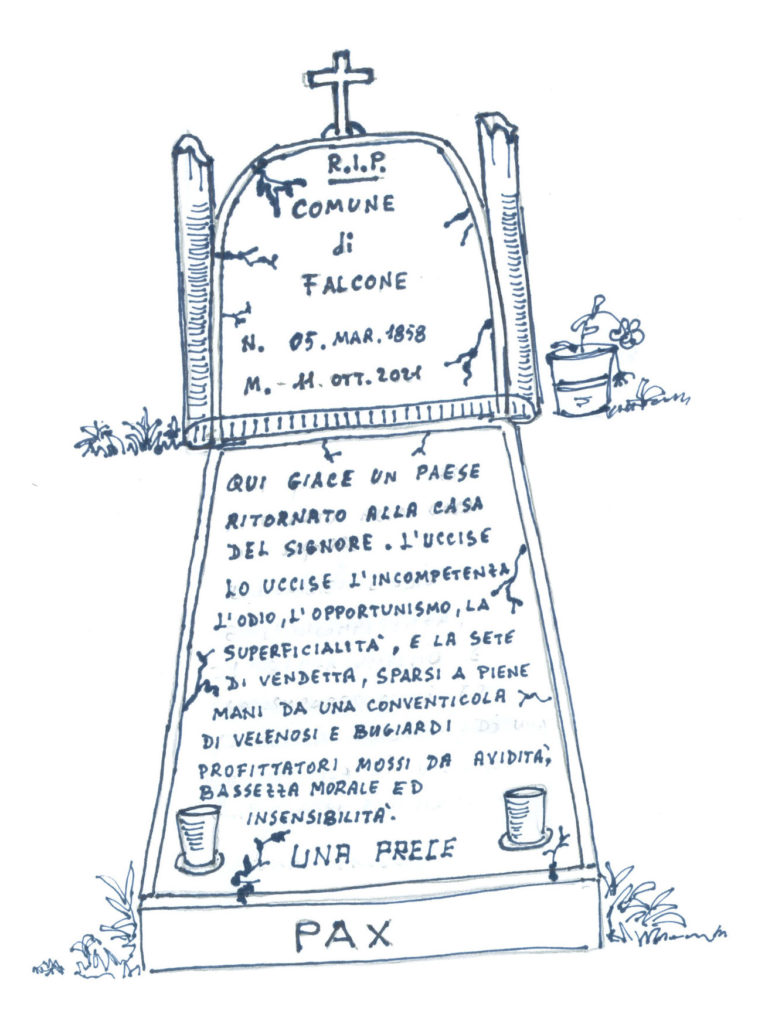 R.I.P.
COMUNE
di
FALCONE
N. 05. MAR. 1858
M. - 11. OTT. 2021
QUI GIACE UN PAESE
RITORNATO ALLA CASA
DEL SIGNORE. L'UCCISE
LO UCCISE L'INCOMPETENZA
L'ODIO, L'OPPORTUNISMO, LA
SUPERFICIALITÀ, E LA SETE
DI VENDETTA, SPARSI A PIENE
MANI DA UNA CONVENTICOLA
DI VELENOSI E BUGIARDI
PROFITTATORI MOSSI DA AVIDITÀ,
BASSEZZA MORALE ED
INSENSIBILITÀ.
UNA PRECE
PAX